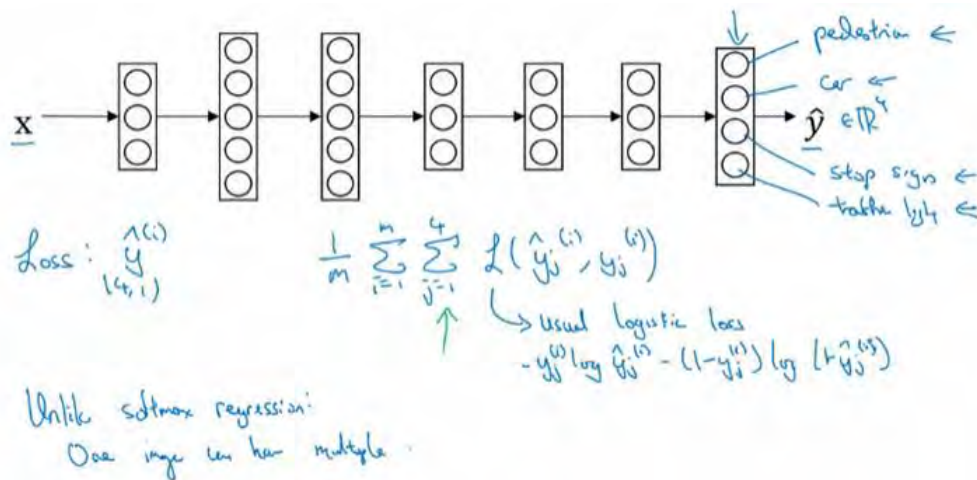 pedestrian ←
car ←
x
ŷ ∈ ℝ⁴
stop sign ←
traffic light ←
Loss: ŷ^(i)
(4,1)
1/m ∑_{i=1}^{m} ∑_{j=1}^{4} ℒ(ŷ_j^(i), y_j^(i))
usual logistic loss
- y_j^(i) log ŷ_j^(i) - (1-y_j^(i)) log (1-ŷ_j^(i))
Unlike softmax regression:
One image can have multiple